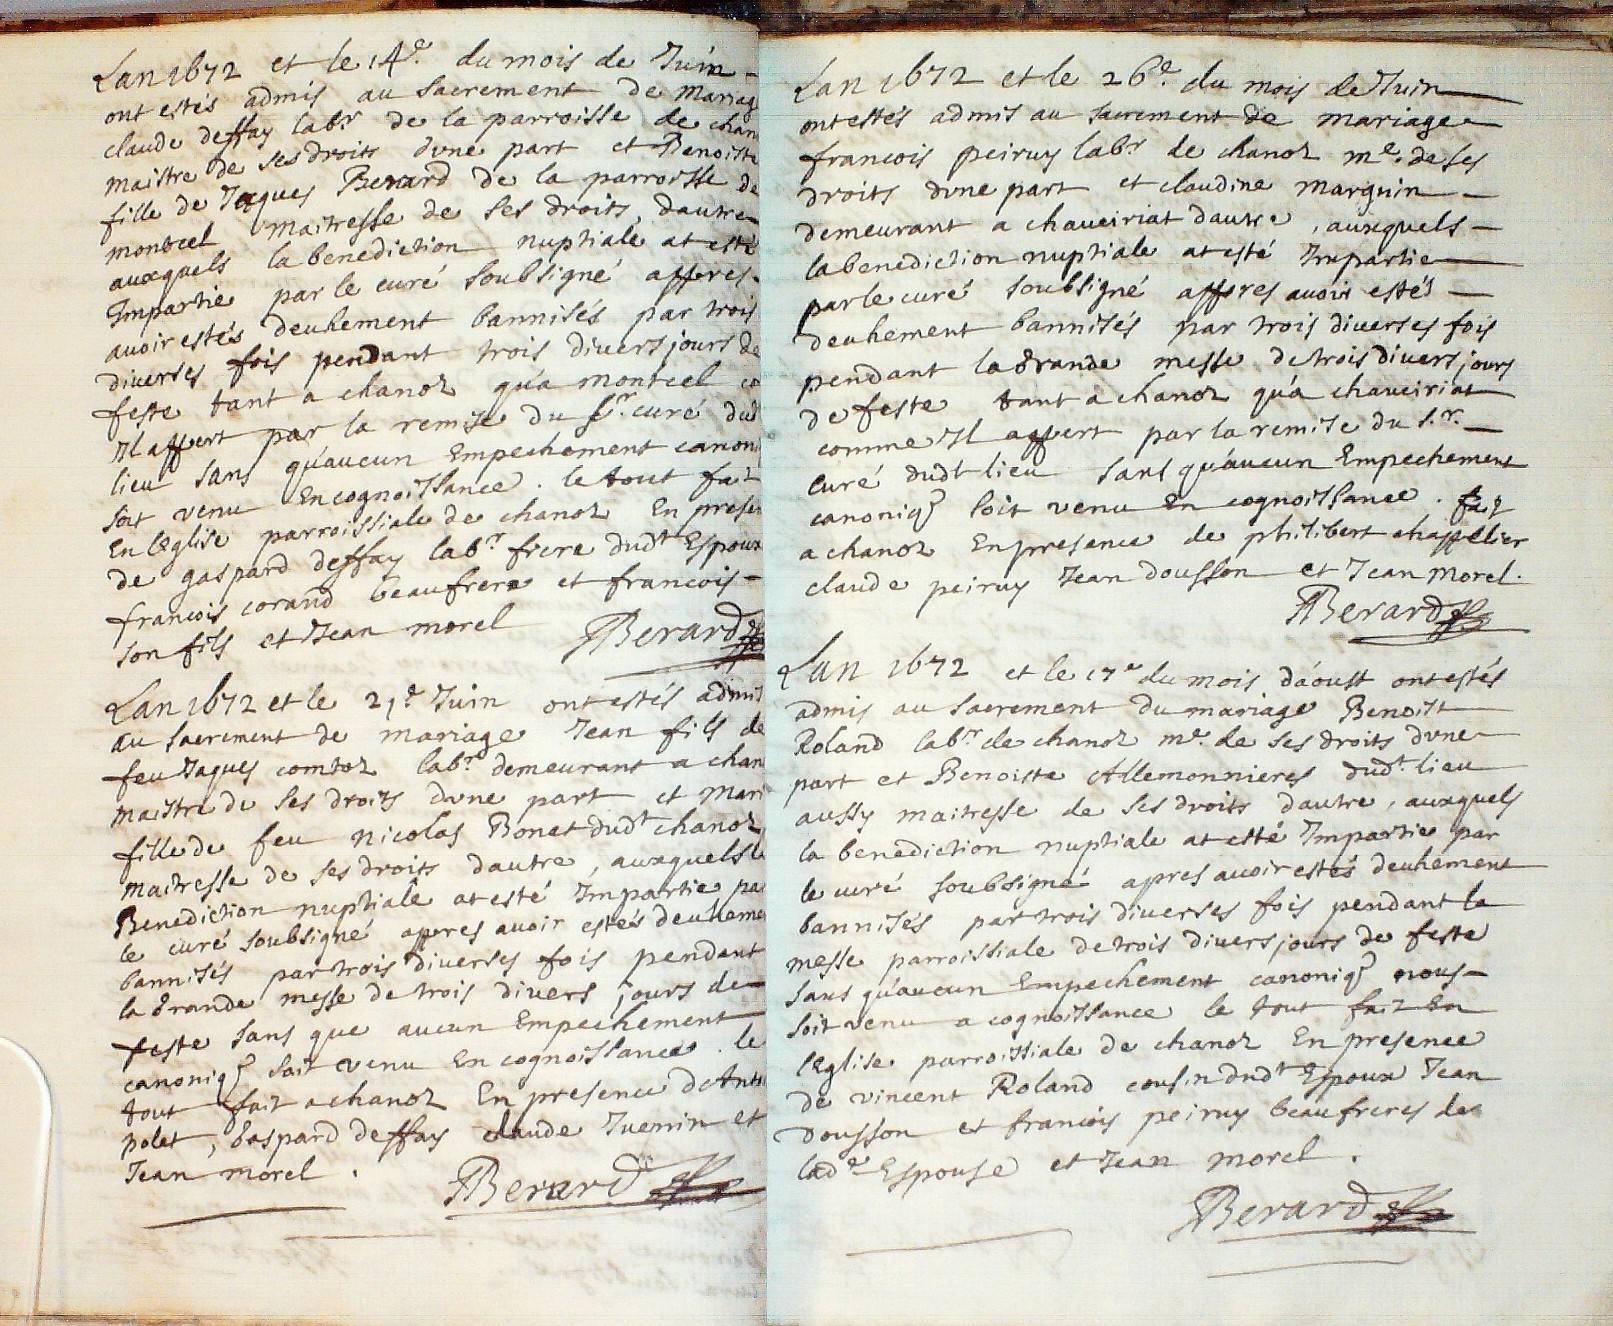 Lan 1672 et le 14e. du mois de Juin
ont estés admis au Sacrement de mariag
claude deffay labr de la parroisse de chan
maistre de ses droits dune part et Benoiste
fille de Jaques Benard de la parroisse de
montcel maitresse de ses droits, dautre
auxquels la benediction nuptiale at esté
Impartie par le curé soubsigné appres
avoir estés deuhement bannisés par trois
diverses fois pendant trois divers jours de
feste tant a chanoz qu'a montcel co
Il appert par la remise du Sr. curé dud
lieu sans qu'aucun Empechement canoni
soit venu En cognoissance. le tout fait
En lEglise parroissiale de chanoz En presen
de gaspard deffay labr. frere dudt Espoux
francois corand beaufrere et francois
son fils et Jean morel
Berard
Lan 1672 et le 21e Juin ont estés admis
au sacrement de mariage Jean fils de
feu Jaques comtoz labr. demeurant a chan
maistre de ses droits dune part et Mari
fille de feu nicolas Bonat dudt chanoz
maitresse de ses droits dautre, auxquels la
Benediction nuptiale at esté Impartie par
le curé soubsigné appres avoir estés deuheme
bannisés par trois diverses fois pendant
la Grande messe de trois divers jours de
feste sans que aucun Empechement
canoniq soit venu En cognoissance. le
tout fait a chanoz En presence de Ant
polet, Gaspard deffay claude Juenin et
Jean morel.
Berard
Lan 1672 et le 26e. du mois de Juin
ont estés admis au sacrement de mariage
francois peiruy labr de chanoz me. de ses
droits dune part et claudine marguin
demeurant a chaveiriat dautre, auxquels
la benediction nuptiale at esté Impartie
par le curé soubsigné appres avoir estés
deuhement bannisés par trois diverses fois
pendant la Grande messe de trois divers jours
de feste tant a chanoz qu'a chaveiriat
comme Il appert par la remise du S.r.
curé dudt lieu sans qu'aucun Empechement
canoniq soit venu En cognoissance. fait
a chanoz En presence de philibert chappellier
claude peiruy Jean dousson et Jean morel.
Berard
Lan 1672 et le 17e du mois d'aoust ont estés
admis au sacrement du mariage Benoist
Roland labr. de chanoz me. de ses droits dune
part et Benoiste Allemonnieres dudt. lieu
aussy maitresse de ses droits dautre, auxquels
la benediction nuptiale at esté Impartie par
le curé soubsigné apres avoir estés deuhement
bannisés par trois diverses fois pendant la
messe parroissiale de trois divers jours de feste
sans qu'aucun Empechement canoniq nous
soit venu a cognoissance le tout fait En
lEglise parroissiale de chanoz En presence
de vincent Roland cousin dudt Espoux Jean
dousson et francois peiruy beaufreres de
lade Espouse et Jean morel.
Berard